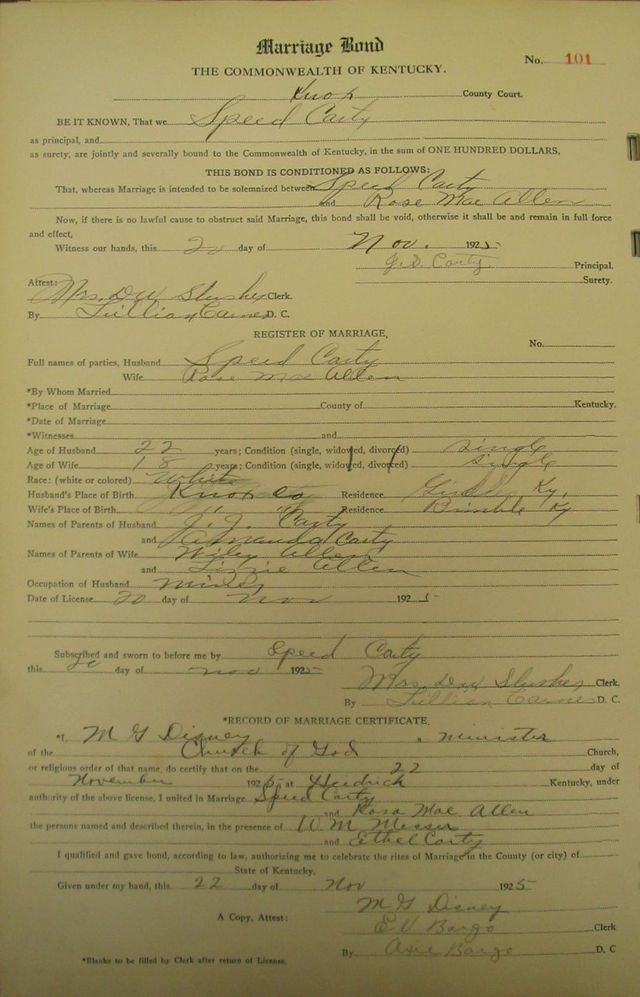 Marriage Bond
No. 101
THE COMMONWEALTH OF KENTUCKY.
Knox County Court.
BE IT KNOWN, That we Speed Carty
as principal, and
as surety, are jointly and severally bound to the Commonwealth of Kentucky, in the sum of ONE HUNDRED DOLLARS.
THIS BOND IS CONDITIONED AS FOLLOWS:
That, whereas Marriage is intended to be solemnized between Speed Carty
and Rose Mae Allen
Now, if there is no lawful cause to obstruct said Marriage, this bond shall be void, otherwise it shall be and remain in full force
and effect,
Witness our hands, this 20 day of Nov. 1925
J. D. Carty Principal.
Surety.
Attest:
Mrs. DW Slusher Clerk.
By Lillian Carnes D. C.
REGISTER OF MARRIAGE,
No.
Full names of parties, Husband Speed Carty
Wife Rose Mae Allen
*By Whom Married
*Place of Marriage County of Kentucky.
*Date of Marriage
*Witnesses and
Age of Husband 22 years; Condition (single, widowed, divorced) single
Age of Wife 18 years; Condition (single, widowed, divorced) single
Race: (white or colored) White
Husband's Place of Birth Knox Co Residence Ky.
Wife's Place of Birth " " Residence Bimble Ky
Names of Parents of Husband J. J. Carty
and Amanda Carty
Names of Parents of Wife Wiley Allen
and Lizzie Allen
Occupation of Husband
Date of License 20 day of Nov 1925
Subscribed and sworn to before me by Speed Carty
this 20 day of Nov 1925
Mrs. DW Slusher Clerk,
By Lillian Carnes D. C.
*RECORD OF MARRIAGE CERTIFICATE.
*I, M G Disney, a minister
of the Church of God Church,
or religious order of that name, do certify that on the 22 day of
November 1925 at Heidrick Kentucky, under
authority of the above license, I united in Marriage Speed Carty
and Rosa Mae Allen
the persons named and described therein, in the presence of W. M Messer
and Ethel Carty
I qualified and gave bond, according to law, authorizing me to celebrate the rites of Marriage in the County (or city) of
State of Kentucky.
Given under my hand, this 22 day of Nov 1925
M G Disney
A Copy, Attest: E V Bargo Clerk
By Bargo D. C
*Blanks to be filled by Clerk after return of License.